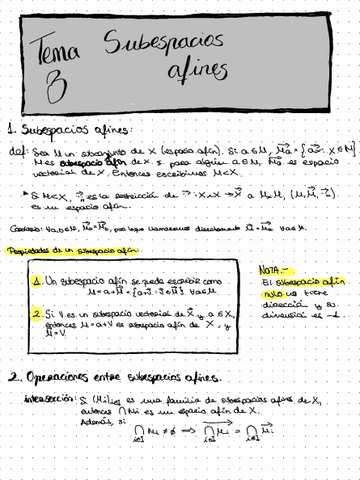 Tema 3
Subespacios afines
1. Subespacios afines:
def: Sea M un subconjunto de X (espacio afín). Si a∈M, M⃗a = {a⃗x : x∈M}
M es subespacio afín de X si para algún a∈M, M⃗a es espacio
vectorial de X⃗. Entonces escribimos M<X.
* Si M<X, es la restricción de X×X→X⃗ a M×M, (M, M⃗, )
es un espacio afín.
∀a,b∈M, M⃗a=M⃗b, por lo que llamaremos directamente ∀a∈M.
Propiedades de un subespacio afín
1. Un subespacio afín se puede escribir como
M = a+M⃗ = {a+v⃗ : v⃗∈M⃗}, ∀a∈M
2. Si V es un subespacio vectorial de X⃗ y a∈X,
entonces M = a+V es subespacio afín de X, y
M⃗=V.
NOTA.-
El subespacio afín
nulo no tiene
dirección y su
dimensión es -1.
2. Operaciones entre subespacios afines.
Intersección: Si {Mi}i∈I es una familia de subespacios afines de X,
entonces ∩Mi es un espacio afín de X.
Además, si
∩i∈I Mi ≠ ∅ ⟹ ∩i∈I Mi = ∩i∈I M⃗i